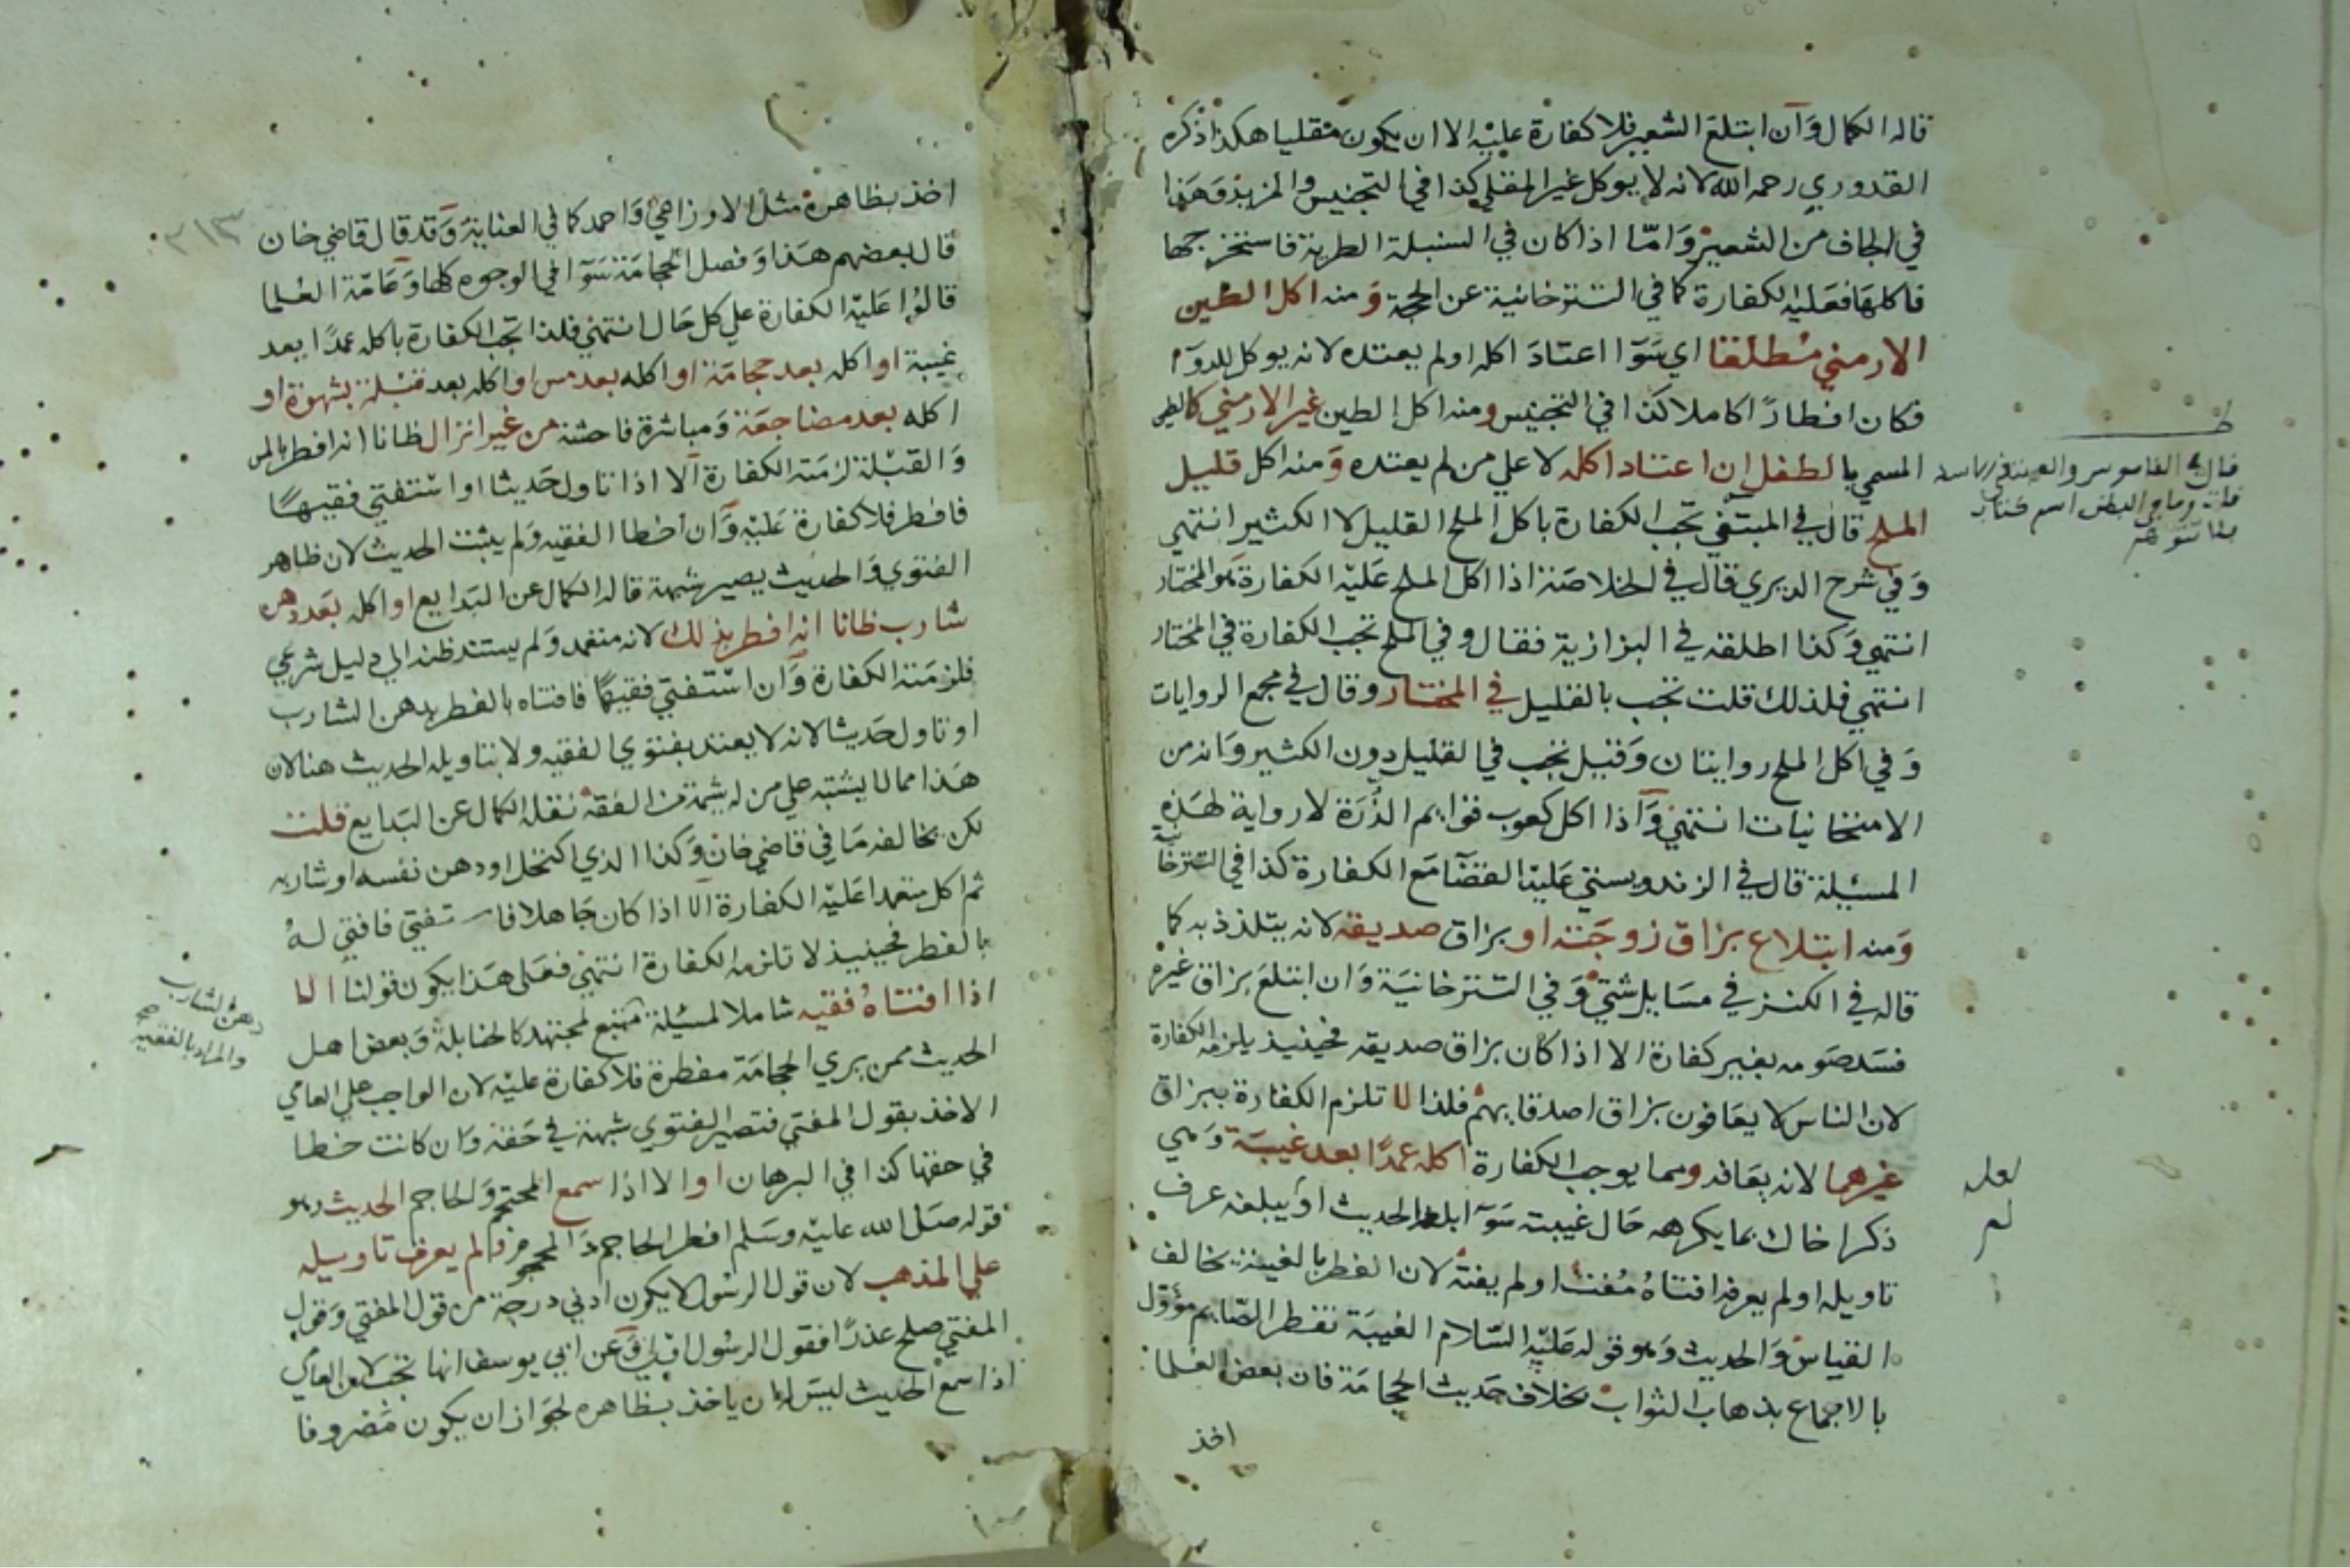 قاله الكمال وان ابتلع الشعير فلا كفارة عليه الا ان يكون مقليا هكذا ذكره
القدوري رحمه الله لانه لا يوكل غير المقلي كذا في التجنيس والمزيد وهذا
في الجاف من الشعير واما اذا كان في السنبلة الطرية فاستخرجها
فاكلها فعليه لكفارة كما في التترخانية عن الحجة ومنه اكل الطين
الارمني مطلقا اي سوآ اعتاد اكله اولم يعتده لانه يوكل للدوآ
فكان افطارًا كاملا كذا في التجنيس ومنه اكل الطين غير الارمني كالطين
المسمي بالطفل ان اعتاد اكله لا علي من لم يعتده ومنه اكل قليل
الملح قال في المبتغي تجب الكفارة باكل الملح القليل لا الكثير انتهي
وفي شرح الديري قال في الخلاصة اذا اكل الملح عليه الكفارة هو المختار
انتهي وكذا اطلقه في البزازية فقال وفي الملح تجب الكفارة في المختار
انتهي فلذلك قلت تجب بالقليل في المختار وقال في مجمع الروايات
وفي اكل الملح روايتان وقيل تجب في القليل دون الكثير وانه من
الامتحانيات انتهي واذا اكل كعوب قوايم الذرة لا رواية لهذه
المسيلة قال في الزندويستي عليه القضآ مع الكفارة كذا في التترخانية
ومنه ابتلاع بزاق زوجته او بزاق صديقه لانه يتلذذ به كما
قاله في الكنز في مسايل شتي وفي التترخانية وان ابتلع بزاق غيره
فسد صومه بغير كفارة الا اذا كان بزاق صديقه فحينيذ يلزمه الكفارة
لان الناس لا يعافون بزاق اصدقايهم فلذا لا تلزم الكفارة ببزاق
غيرهما لانه يعافه ومما يوجب الكفارة اكله عمدًا بعد غيبة وهي
ذكر اخاك بما يكرهه حال غيبته سوآ ابلغه الحديث او يبلغه عرف
تاويله اولم يعرفه افتاه مفت اولم يفته لان الفطر بالغيبة يخالف
القياس والحديث وهو قوله عليه السلام الغيبة تفطر الصايم مؤول
بالاجماع بذهاب الثواب بخلاف حديث الحجامة فان بعض العلما
اخذ
لعله
لم
اخذ بظاهره مثل الاوزاعي واحمد كما في العناية وقد قال قاضي خان
قال بعضهم هذا وفصل الحجامة سوآ في الوجوه كلها وعامة العلما
قالوا عليه الكفارة علي كل حال انتهي فلذا تجب الكفارة باكله عمدًا بعد
غيبة او اكله بعد حجامة او اكله بعد مس او اكله بعد قبلة بشهوة او
اكله بعد مضاجعة ومباشرة فاحشة من غير انزال ظانا انه افطر بالمس
والقبلة لزمته الكفارة الا اذا تاول حديثا او استفتي فقيهًا
فافطر فلا كفارة عليه وان اخطا الفقيه ولم يثبت الحديث لان ظاهر
الفتوي والحديث يصير شبهة قاله الكمال عن البدايع او اكله بعد دهن
شارب ظانا انه افطر بذلك لانه متعمد ولم يستند ظنه الي دليل شرعي
فلزمته الكفارة وان استفتي فقيهًا فافتاه بالفطر بدهن الشارب
او تاول حديثا لانه لا يعتد بفتوي الفقيه ولا بتاويله الحديث هنا لان
هذا مما لا يشتبه علي من له شمة من الفقه نقله الكمال عن البدايع قلت
لكن يخالفه ما في قاضي خان وكذا الذي اكتحل او دهن نفسه او شاربه
ثم اكل متعمدا عليه الكفارة الا اذا كان جاهلا فاستفتي فافتي له
بالفطر فحينيذ لا تلزمه الكفارة انتهي فعلي هذا يكون قولنا الا
اذا افتاه فقيه شاملا لمسيلة متبع لمجتهد كالحنابلة وبعض اهل
الحديث ممن يري الحجامة مفطرة فلا كفارة عليه لان الواجب علي العامي
الاخذ بقول المفتي فتصير الفتوي شبهة في حقه وان كانت خطا
في حقها كذا في البرهان او الا اذا سمع المحتجم والحاجم الحديث وهو
قوله صلي الله عليه وسلم افطر الحاجم والمحجوم ولم يعرف تاويله
علي المذهب لان قول الرسول لا يكون ادني درجة من قول المفتي وقول
المفتي صلح عذرًا فقول الرسول اولي وعن ابي يوسف انها تجب لان العامي
اذا سمع الحديث ليس له ان ياخذ بظاهره لجواز ان يكون مصروفا
دهن الشارب
والمراد بالفقيه
٢١٣